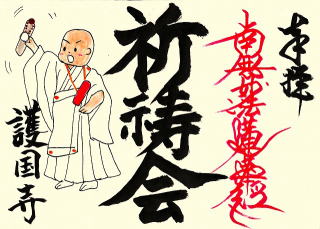 奉拝
南無妙法蓮華経
祈祷会
護国寺